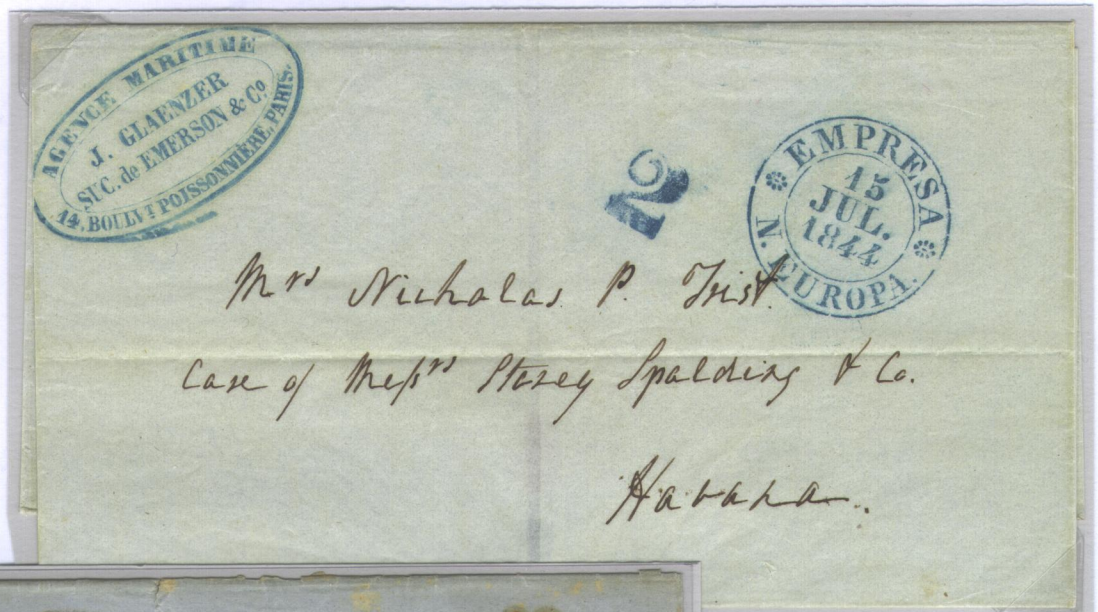 AGENCE MARITIME
J. GLAENZER
SUC. de EMERSON & Cº
14, BOULVT POISSONNIÈRE, PARIS.
2
EMPRESA
15
JUL.
1844
N. EUROPA.
Mrs Nicholas P. Trist.
Care of Messrs Storey Spalding & Co.
Havana.